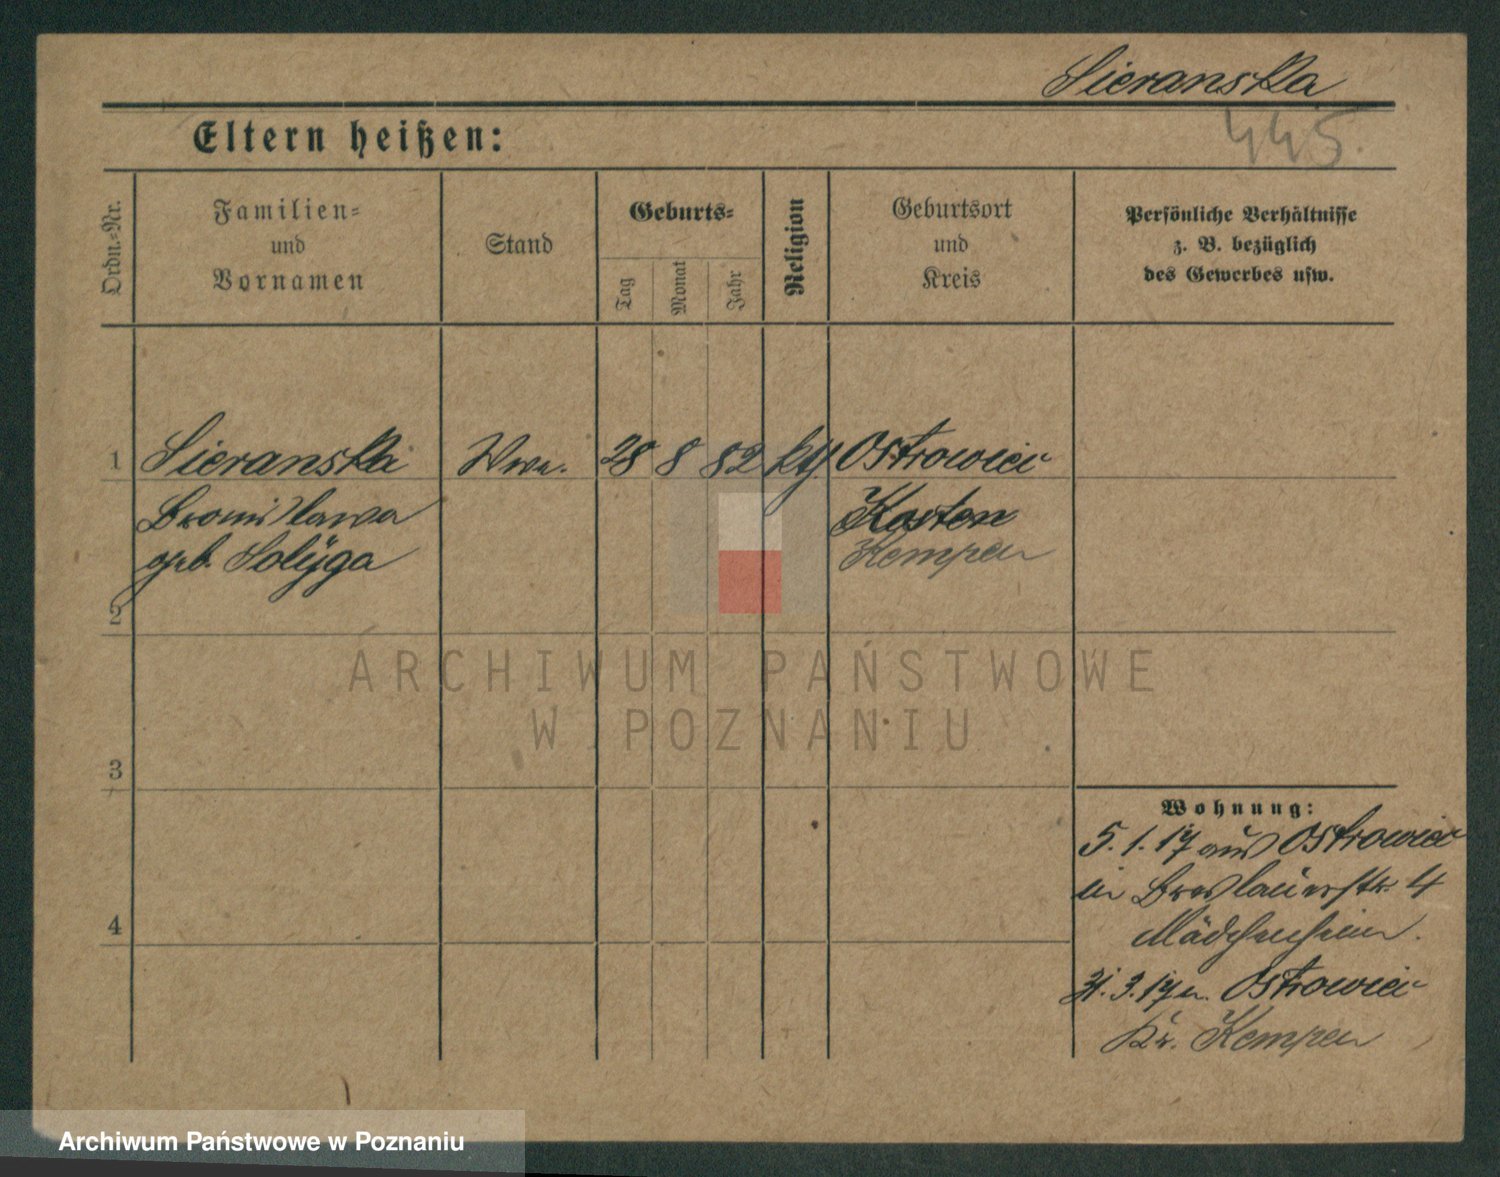 Sieranska
445
Eltern heißen:
Ordn.-Nr.
Familien-
und
Vornamen
Stand
Geburts-
Tag
Monat
Jahr
Religion
Geburtsort
und
Kreis
Persönliche Verhältnisse
z. B. bezüglich
des Gewerbes usw.
1 Sieranska Wwe. 28 8 82 kth. Ostrowiec
Bronislawa Kosten
geb. Solyga Kempen
2
ARCHIWUM PAŃSTWOWE
W POZNANIU
3
Wohnung:
5. 1. 17 aus Ostrowiec
in Breslauerstr. 4
4
Mädchenheim.
31. 3. 17 n. Ostrowiec
Kr. Kempen
Archiwum Państwowe w Poznaniu